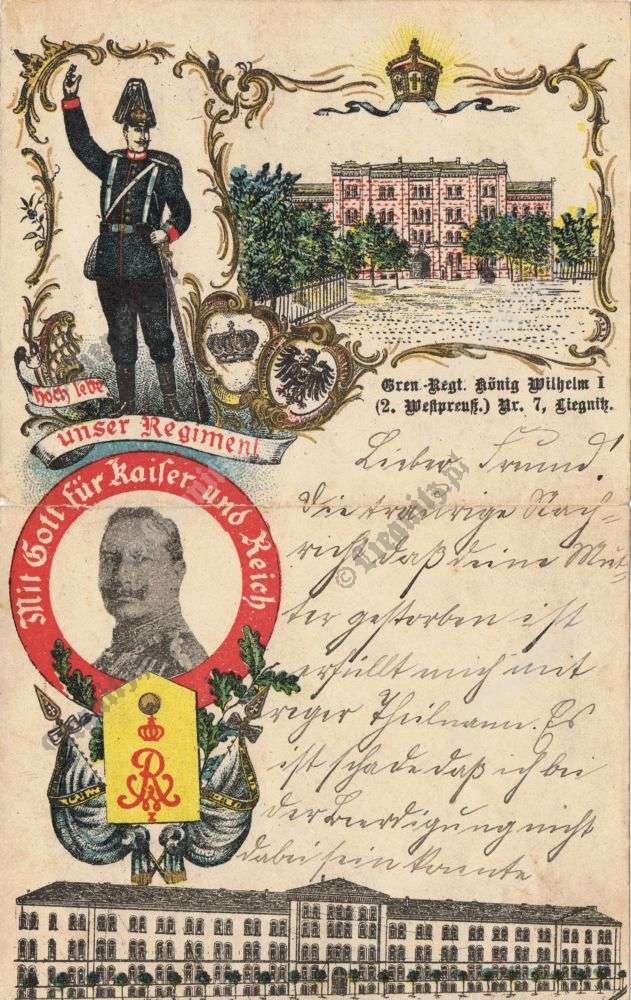 hoch lebe
unser Regiment
Gren.-Regt. König Wilhelm I
(2. Westpreuß.) Nr. 7, Liegnitz.
Mit Gott für Kaiser und Reich
Lieber Freund!
Die traurige Nach-
richt, daß deine Mut-
ter gestorben ist
erfüllt mich mit
reger Theilnam. Es
ist schade daß ich bei
der Beerdigung nicht
dabei sein konnte
© Liegnitz.pl